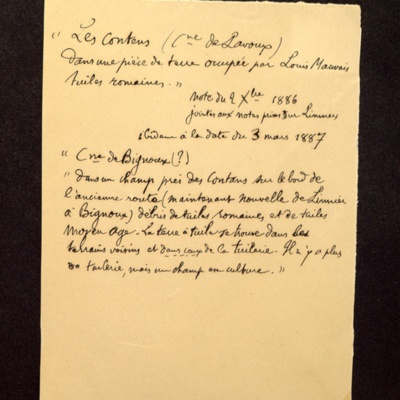 "Les Contens (Cne de Lavoux)
Dans une pièce de terre occupée par Louis Mauvais
tuiles romaines. "
note du 2 Xbre 1886
jointes aux notes prises sur Limiers
ibidem à la date du 3 mars 1887
" Cne de Bignoux (?)
" Dans un champ près des Contans sur le bord de
l'ancienne route (maintenant nouvelle de Limiers
à Bignoux) débris de tuiles romaines et de tuiles
moyen age - La terre à tuile se trouve dans les
terrains voisins et dans ceux de la tuilerie. Il n'y a plus
de tuilerie, mais un champ en culture. "